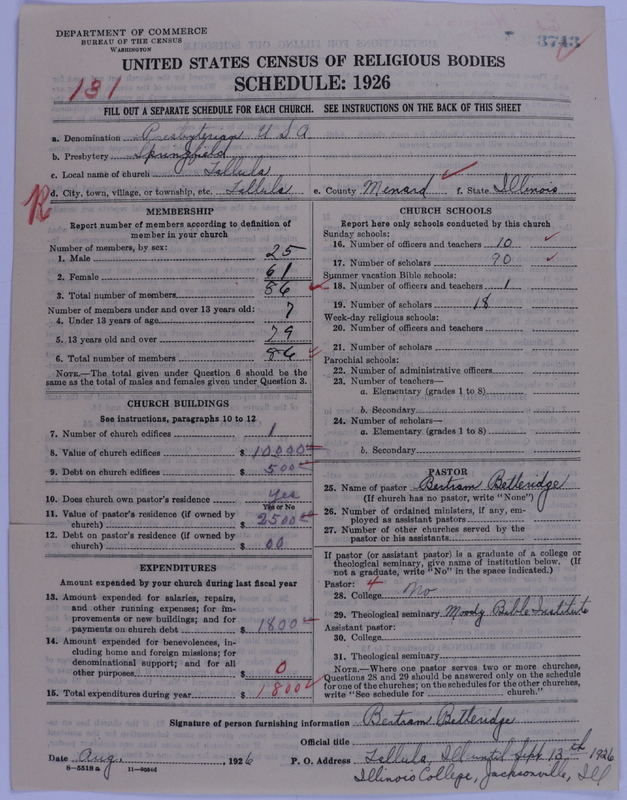 DEPARTMENT OF COMMERCE
BUREAU OF THE CENSUS
WASHINGTON
3743
UNITED STATES CENSUS OF RELIGIOUS BODIES
SCHEDULE: 1926
131
FILL OUT A SEPARATE SCHEDULE FOR EACH CHURCH. SEE INSTRUCTIONS ON THE BACK OF THIS SHEET
a. Denomination Presbyterian U S A
b. Presbytery Springfield
c. Local name of church Tallula
R d. City, town, village, or township, etc. Tallula e. County Menard f. State Illinois
MEMBERSHIP
Report number of members according to definition of
member in your church
Number of members, by sex:
1. Male 25
2. Female 61
3. Total number of members 86
Number of members under and over 13 years old:
4. Under 13 years of age 7
5. 13 years old and over 79
6. Total number of members 86
NOTE.—The total given under Question 6 should be
same as the total of males and females given under Question 3.
CHURCH BUILDINGS
See instructions, paragraphs 10 to 12
7. Number of church edifices 1
8. Value of church edifices $ 10000
9. Debt on church edifices $ 500
10. Does church own pastor's residence Yes
Yes or No
11. Value of pastor's residence (if owned by
church) $ 2500
12. Debt on pastor's residence (if owned by
church) $ 00
EXPENDITURES
Amount expended by your church during last fiscal year
13. Amount expended for salaries, repairs,
and other running expenses; for im-
provements or new buildings; and for
payments on church debt $ 1800
14. Amount expended for benevolences, in-
cluding home and foreign missions; for
denominational support; and for all
other purposes $ 0
15. Total expenditures during year $ 1800
CHURCH SCHOOLS
Report here only schools conducted by this church
Sunday schools:
16. Number of officers and teachers 10
17. Number of scholars 90
Summer vacation Bible schools:
18. Number of officers and teachers 1
19. Number of scholars 18
Week-day religious schools:
20. Number of officers and teachers
21. Number of scholars
Parochial schools:
22. Number of administrative officers
23. Number of teachers—
a. Elementary (grades 1 to 8)
b. Secondary
24. Number of scholars—
a. Elementary (grades 1 to 8)
b. Secondary
PASTOR
25. Name of pastor Bertram Betheridge
(If church has no pastor, write "None")
26. Number of ordained ministers, if any, em-
ployed as assistant pastors
27. Number of other churches served by the
pastor or his assistants
If pastor (or assistant pastor) is a graduate of a college or
theological seminary, give name of institution below. (If
not a graduate, write "No" in the space indicated.)
Pastor: 4
28. College No
29. Theological seminary Moody Bible Institute
Assistant pastor:
30. College
31. Theological seminary
NOTE.—Where one pastor serves two or more churches,
Questions 28 and 29 should be answered only on the schedule
for one of the churches; on the schedules for the other churches,
write "See schedule for church."
Signature of person furnishing information Bertram Betheridge
Official title
Date Aug. , 1926 P. O. Address Tallula, Ill until Sept 13th 1926
8—5518a Illinois College, Jacksonville, Ill